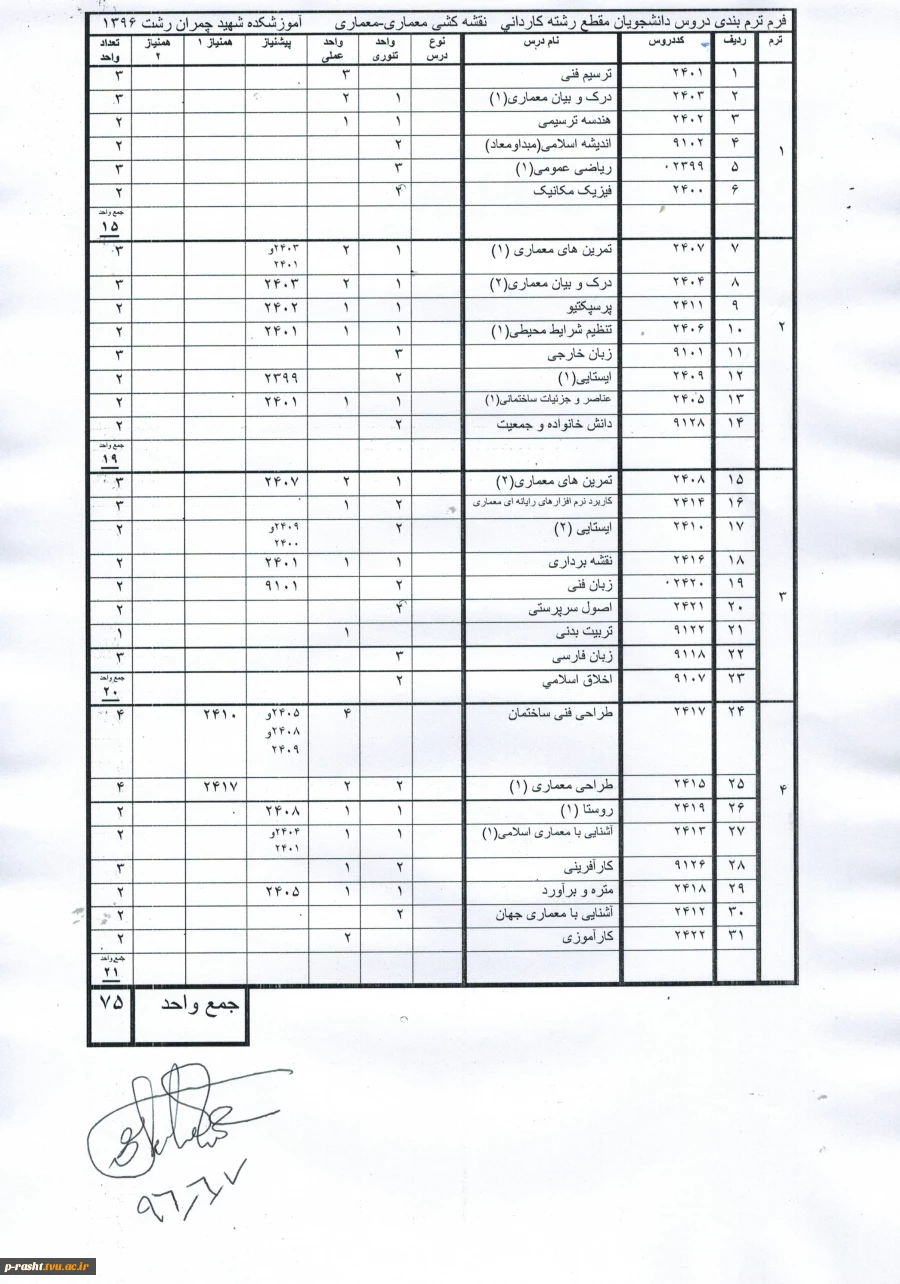 فرم ترم بندی دروس دانشجویان مقطع رشته كارداني نقشه کشی معماری-معماری آموزشکده شهید چمران رشت ۱۳۹۶
ترم ردیف کددروس نام درس نوع درس واحد تئوری واحد عملی پیشنیاز همنیاز ۱ همنیاز ۲ تعداد واحد
۱
۱ ۲۴۰۱ ترسیم فنی ۳ ۳
۲ ۲۴۰۳ درک و بیان معماری(۱) ۱ ۲ ۳
۳ ۲۴۰۲ هندسه ترسیمی ۱ ۱ ۲
۴ ۹۱۰۲ اندیشه اسلامی(مبداومعاد) ۲ ۲
۵ ۰۲۳۹۹ ریاضی عمومی(۱) ۳ ۳
۶ ۲۴۰۰ فیزیک مکانیک ۲ ۲
جمع واحد
۱۵
۲
۷ ۲۴۰۷ تمرین های معماری (۱) ۱ ۲ ۲۴۰۳و ۳
۲۴۰۱
۸ ۲۴۰۴ درک و بیان معماری(۲) ۱ ۲ ۲۴۰۳ ۳
۹ ۲۴۱۱ پرسپکتیو ۱ ۱ ۲۴۰۲ ۲
۱۰ ۲۴۰۶ تنظیم شرایط محیطی(۱) ۱ ۱ ۲۴۰۱ ۲
۱۱ ۹۱۰۱ زبان خارجی ۳ ۳
۱۲ ۲۴۰۹ ایستایی(۱) ۲ ۲۳۹۹ ۲
۱۳ ۲۴۰۵ عناصر و جزئیات ساختمانی(۱) ۱ ۱ ۲۴۰۱ ۲
۱۴ ۹۱۲۸ دانش خانواده و جمعیت ۲ ۲
جمع واحد
۱۹
۳
۱۵ ۲۴۰۸ تمرین های معماری(۲) ۱ ۲ ۲۴۰۷ ۳
۱۶ ۲۴۱۴ کاربرد نرم افزارهای رایانه ای معماری ۲ ۱ ۳
۱۷ ۲۴۱۰ ایستایی (۲) ۲ ۲۴۰۹و ۲
۲۴۰۰
۱۸ ۲۴۱۶ نقشه برداری ۱ ۱ ۲۴۰۱ ۲
۱۹ ۰۲۴۲۰ زبان فنی ۲ ۹۱۰۱ ۲
۲۰ ۲۴۲۱ اصول سرپرستی ۲ ۲
۲۱ ۹۱۲۲ تربیت بدنی ۱ ۱
۲۲ ۹۱۱۸ زبان فارسی ۳ ۳
۲۳ ۹۱۰۷ اخلاق اسلامي ۲
جمع واحد
۲۰
۴
۲۴ ۲۴۱۷ طراحی فنی ساختمان ۴ ۲۴۰۵و ۲۴۱۰ ۴
۲۴۰۸و
۲۴۰۹
۲۵ ۲۴۱۵ طراحی معماری (۱) ۲ ۲ ۲۴۱۷ ۴
۲۶ ۲۴۱۹ روستا (۱) ۱ ۱ ۲۴۰۸ ۲
۲۷ ۲۴۱۳ آشنایی با معماری اسلامی(۱) ۱ ۱ ۲۴۰۴و ۲
۲۴۰۱
۲۸ ۹۱۲۶ کارآفرینی ۲ ۱ ۳
۲۹ ۲۴۱۸ متره و برآورد ۱ ۱ ۲۴۰۵ ۲
۳۰ ۲۴۱۲ آشنایی با معماری جهان ۲ ۲
۳۱ ۲۴۲۲ کارآموزی ۲ ۲
جمع واحد
۲۱
جمع واحد ۷۵
۹۶-۶-۷
p-rasht.tvu.ac.ir